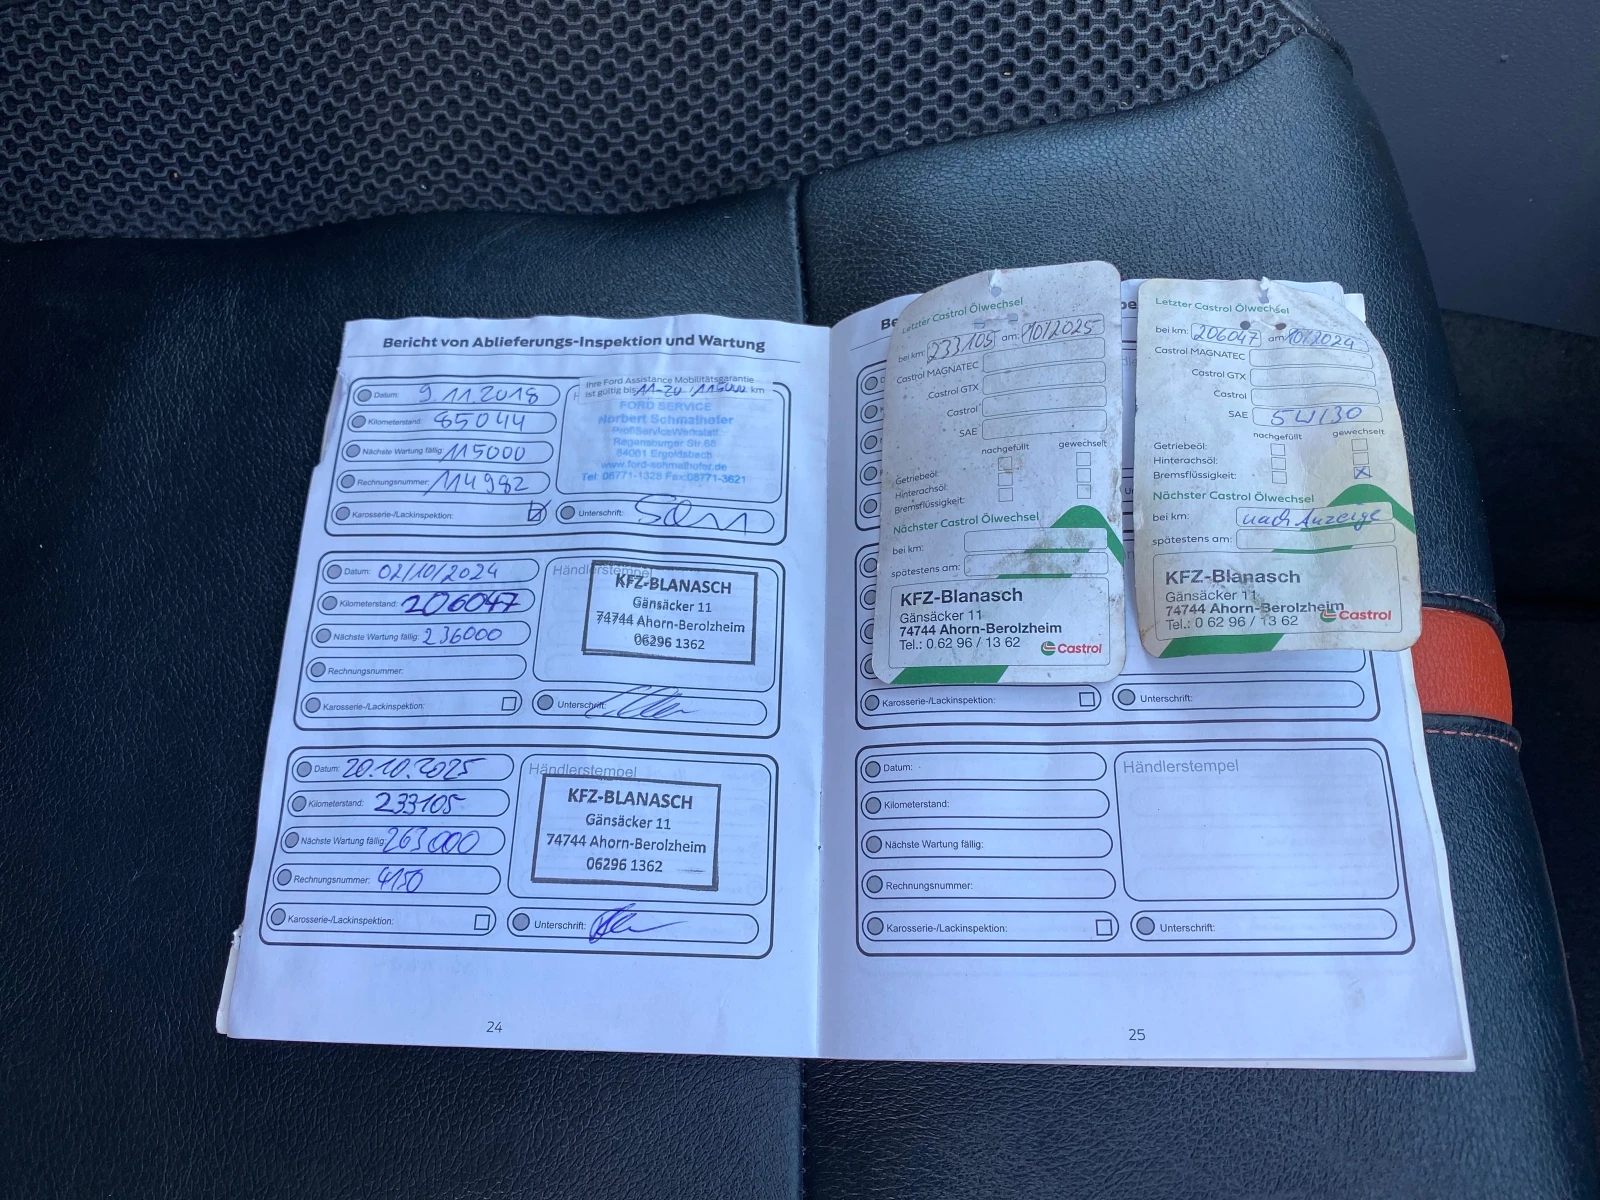 Bericht von Ablieferungs-Inspektion und Wartung
Datum: 9.11.2018
Kilometerstand: 85044
Nächste Wartung fällig: 115000
Rechnungsnummer: 114982
Karosserie-/Lackinspektion:
Ihre Ford Assistance Mobilitätsgarantie
ist gültig bis: 11-20 / 115000 km
FORD SERVICE
Norbert Schmalhofer
ProfiServiceWerkstatt
Regensburger Str. 68
84061 Ergoldsbach
www.ford-schmalhofer.de
Tel: 08771-1328 Fax: 08771-3621
Unterschrift:
Datum: 02/10/2024
Kilometerstand: 206047
Nächste Wartung fällig: 236000
Rechnungsnummer:
Karosserie-/Lackinspektion:
Händlerstempel
KFZ-BLANASCH
Gänsäcker 11
74744 Ahorn-Berolzheim
06296 1362
Unterschrift:
Datum: 20.10.2025
Kilometerstand: 233105
Nächste Wartung fällig: 263000
Rechnungsnummer: 4150
Karosserie-/Lackinspektion:
Händlerstempel
KFZ-BLANASCH
Gänsäcker 11
74744 Ahorn-Berolzheim
06296 1362
Unterschrift:
24
Letzter Castrol Ölwechsel
bei km: 233105 am: 10/2025
Castrol MAGNATEC
Castrol GTX
Castrol
SAE
nachgefüllt gewechselt
Getriebeöl:
Hinterachsöl:
Bremsflüssigkeit:
Nächster Castrol Ölwechsel
bei km:
spätestens am:
KFZ-Blanasch
Gänsäcker 11
74744 Ahorn-Berolzheim
Tel.: 0 62 96 / 13 62
Castrol
Letzter Castrol Ölwechsel
bei km: 206047 am 10/2024
Castrol MAGNATEC
Castrol GTX
Castrol
SAE 5W30
nachgefüllt gewechselt
Getriebeöl:
Hinterachsöl:
Bremsflüssigkeit: X
Nächster Castrol Ölwechsel
bei km: nach Anzeige
spätestens am:
KFZ-Blanasch
Gänsäcker 11
74744 Ahorn-Berolzheim
Tel.: 0 62 96 / 13 62
Castrol
Karosserie-/Lackinspektion:
Unterschrift:
Datum:
Kilometerstand:
Nächste Wartung fällig:
Rechnungsnummer:
Karosserie-/Lackinspektion:
Händlerstempel
Unterschrift:
25